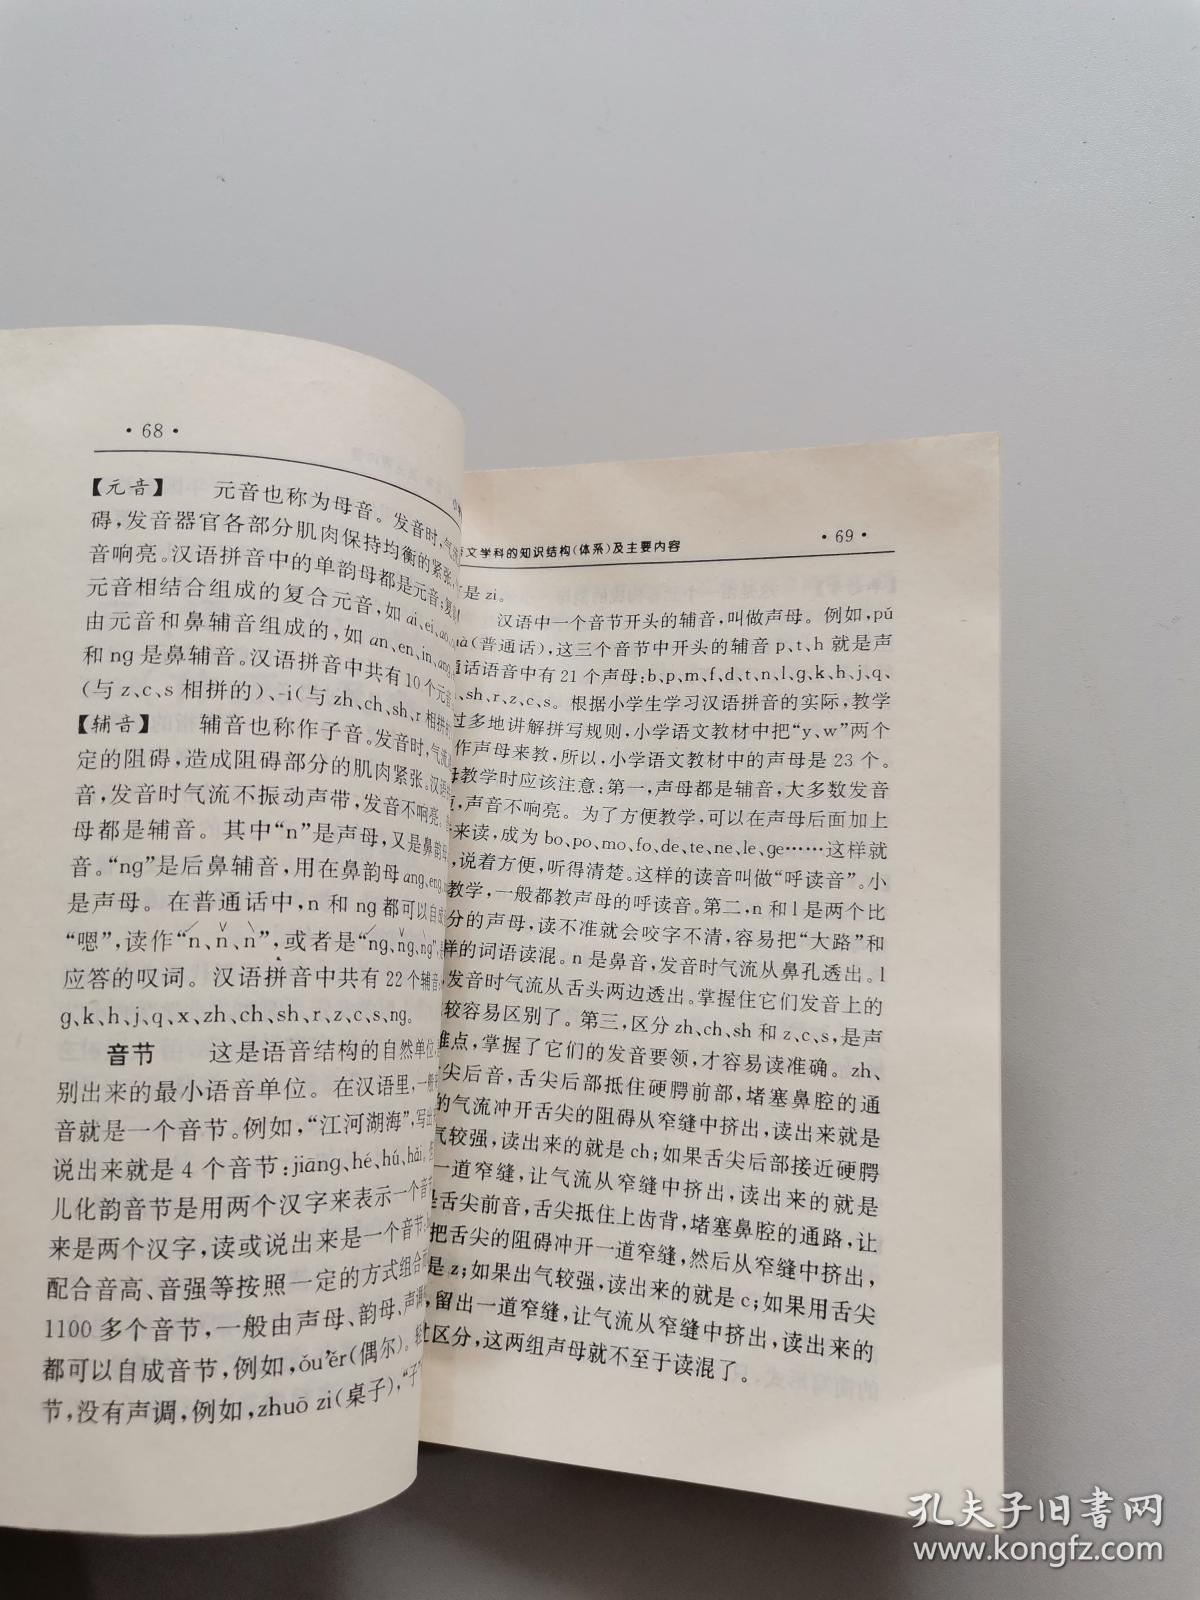 ·68·
【元音】 元音也称为母音。发音时,气
碍,发音器官各部分肌肉保持均衡的紧张,
音响亮。汉语拼音中的单韵母都是元音;复
元音相结合组成的复合元音,如ai、ei、ao、
由元音和鼻辅音组成的,如an、en、in、ang、
和ng是鼻辅音。汉语拼音中共有10个元音
(与z、c、s相拼的)、-i(与zh、ch、sh、r相拼的
【辅音】 辅音也称作子音。发音时,气流
定的阻碍,造成阻碍部分的肌肉紧张。汉语
音,发音时气流不振动声带,发音不响亮。
母都是辅音。其中“n”是声母,又是鼻韵
音。“ng”是后鼻辅音,用在鼻韵母ang、eng、
是声母。在普通话中,n和ng都可以自成
“嗯”,读作“ń、ň、ǹ”,或者是“ńg、ňg、ǹg”,
应答的叹词。汉语拼音中共有22个辅音:
g、k、h、j、q、x、zh、ch、sh、r、z、c、s、ng。
音节 这是语音结构的自然单位,
别出来的最小语音单位。在汉语里,一般
音就是一个音节。例如,“江河湖海”,写出
说出来就是4个音节:jiāng、hé、hú、hǎi。
儿化韵音节是用两个汉字来表示一个音节
来是两个汉字,读或说出来是一个音节。
配合音高、音强等按照一定的方式组合而
1100多个音节,一般由声母、韵母、声调
都可以自成音节,例如,ǒu’ěr(偶尔)。轻
节,没有声调,例如,zhuō zi(桌子),“子”
文学科的知识结构(体系)及主要内容 ·69·
是zi。
汉语中一个音节开头的辅音,叫做声母。例如,pǔ
uà(普通话),这三个音节中开头的辅音p、t、h就是声
通话语音中有21个声母:b、p、m、f、d、t、n、l、g、k、h、j、q、
、sh、r、z、c、s。根据小学生学习汉语拼音的实际,教学
过多地讲解拼写规则,小学语文教材中把“y、w”两个
作声母来教,所以,小学语文教材中的声母是23个。
母教学时应该注意:第一,声母都是辅音,大多数发音
,声音不响亮。为了方便教学,可以在声母后面加上
来读,成为bo、po、mo、fo、de、te、ne、le、ge……这样就
,说着方便,听得清楚。这样的读音叫做“呼读音”。小
教学,一般都教声母的呼读音。第二,n和l是两个比
分的声母,读不准就会咬字不清,容易把“大路”和
样的词语读混。n是鼻音,发音时气流从鼻孔透出。l
发音时气流从舌头两边透出。掌握住它们发音上的
较容易区别了。第三,区分zh、ch、sh和z、c、s,是声
难点,掌握了它们的发音要领,才容易读准确。zh、
尖后音,舌尖后部抵住硬腭前部,堵塞鼻腔的通
的气流冲开舌尖的阻碍从窄缝中挤出,读出来就是
气较强,读出来的就是ch;如果舌尖后部接近硬腭
一道窄缝,让气流从窄缝中挤出,读出来的就是
是舌尖前音,舌尖抵住上齿背,堵塞鼻腔的通路,让
把舌尖的阻碍冲开一道窄缝,然后从窄缝中挤出,
是z;如果出气较强,读出来的就是c;如果用舌尖
,留出一道窄缝,让气流从窄缝中挤出,读出来的
区分,这两组声母就不至于读混了。
孔夫子旧书网
www.kongfz.com